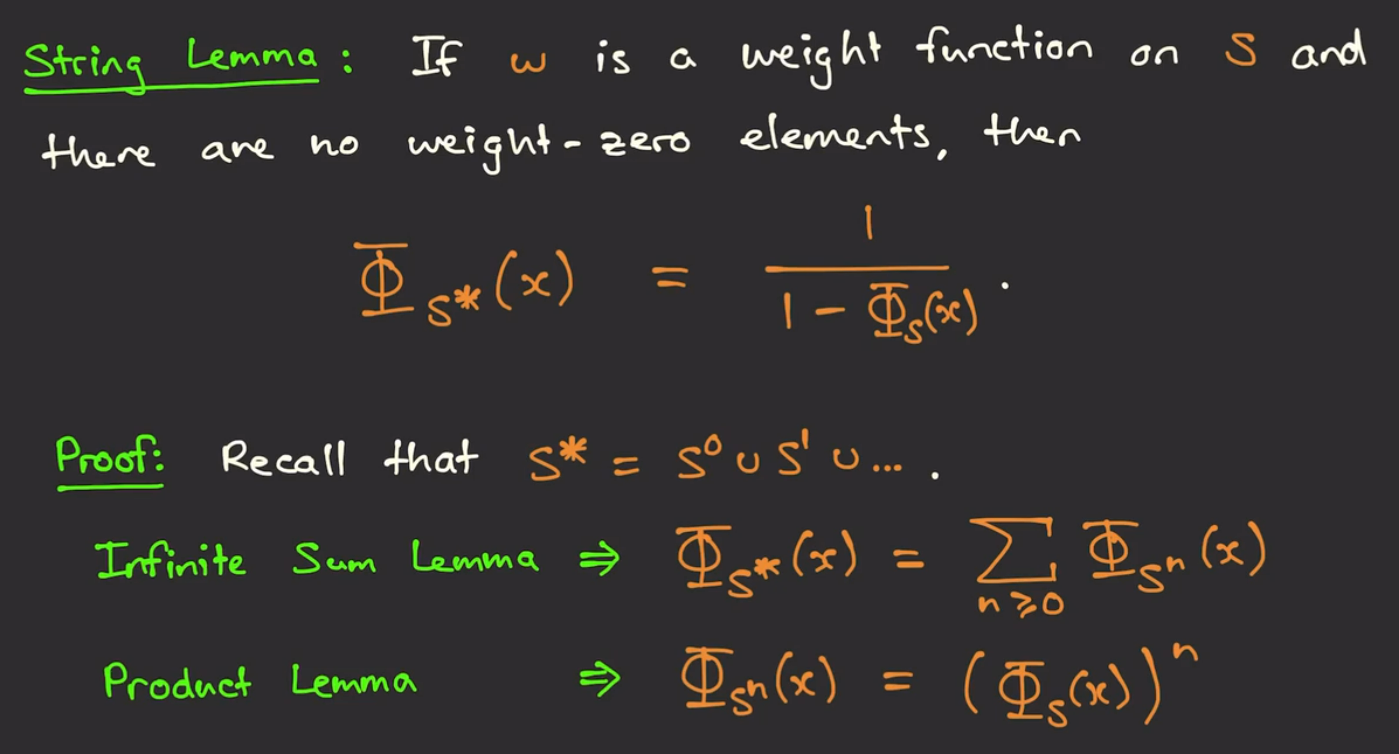 String Lemma: If w is a weight function on S and
there are no weight-zero elements, then
Φ_{S*}(x) = 1 / (1 - Φ_S(x)).
Proof: Recall that S* = S⁰ ∪ S¹ ∪ ... .
Infinite Sum Lemma ⇒ Φ_{S*}(x) = Σ_{n≥0} Φ_{Sⁿ}(x)
Product Lemma ⇒ Φ_{Sⁿ}(x) = (Φ_S(x))ⁿ